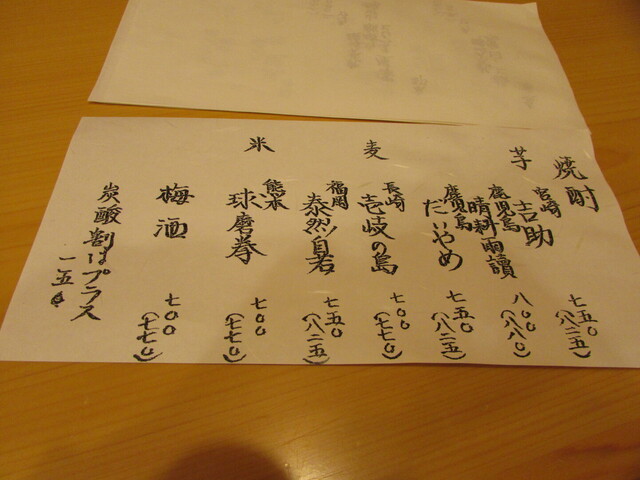 焼酎
芋
宮崎
吉助
七五〇
(八二五)
鹿児島
晴耕雨讀
八〇〇
(八八〇)
鹿児島
だいやめ
七五〇
(八二五)
麦
長崎
壱岐の島
七〇〇
(七七〇)
福岡
泰然自若
七五〇
(八二五)
米
熊本
球磨拳
七〇〇
(七七〇)
梅酒
七〇〇
(七七〇)
炭酸割はプラス
一五〇